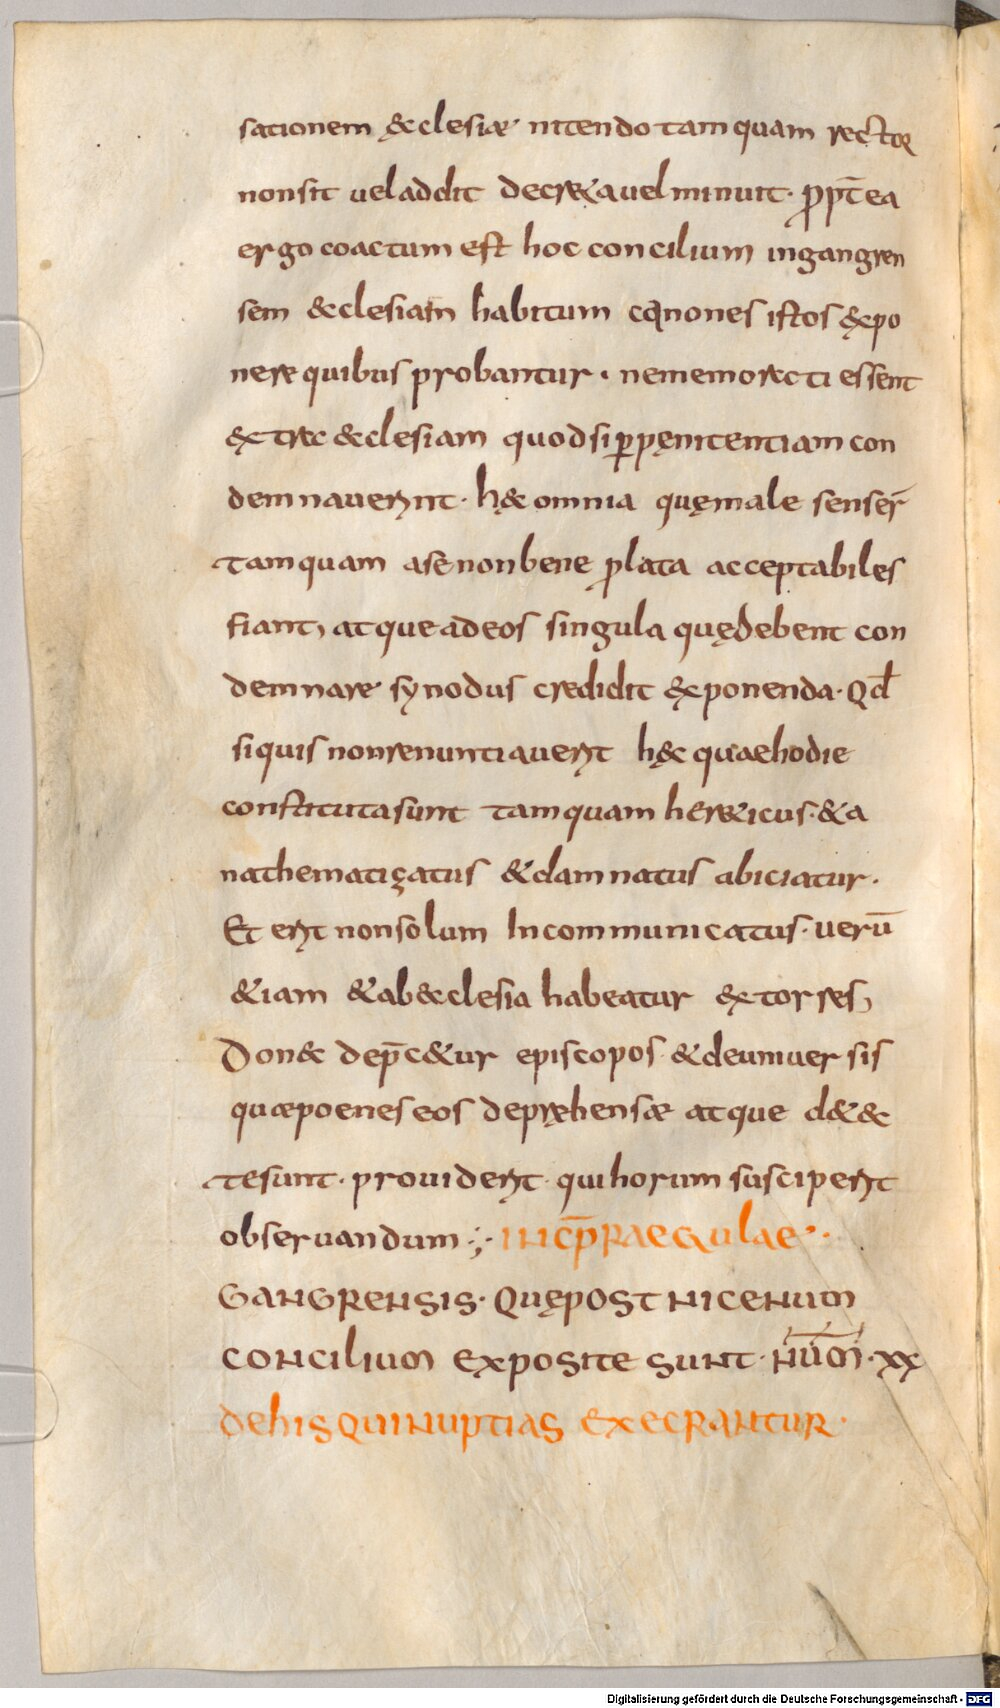 sationem &clesiae nitendo tamquam rector
nonsit vel addit decre&a vel minuit· ꝓpt̄ea
ergo coactum est hoc concilium in gangren
sem &clesiam habitum canones istos &̨po
nere quibus probantur · ne memorecti essent
&̨trec &clesiam quod si ꝑ pęnitentiam con
demnaverint· h& omnia quę male senser̄
tamquam a se non bene ꝓlata acceptabiles
fiant, atque ad eos singula quę debent con
demnare synodus credidit &̨ponenda· Qd̄
si quis non renuntiaverit h&̨c quae hodie
constituta sunt tamquam her&icus· & a
nathematiçatus & damnatus abiciatur·
Et erit non solum Incommunicatus· uerū
&iam & ab &clesia habeatur &̨torres,
Don&c dep̄c&ur episcopos· & de univer sis
quae poenes eos depręhensae atque d&&c
te sunt· providerit· qui horum susciperit
observandum ;· INCP̄ RAEGULAE·
GANGRENSIS· QUĘ POST NICENUM
CONCILIUM EXPOSITE SUNT· NŪM̄· XX
DE HIS QUI NUPTIAS EXECRANTUR·
Digitalisierung gefördert durch die Deutsche Forschungsgemeinschaft - DFG